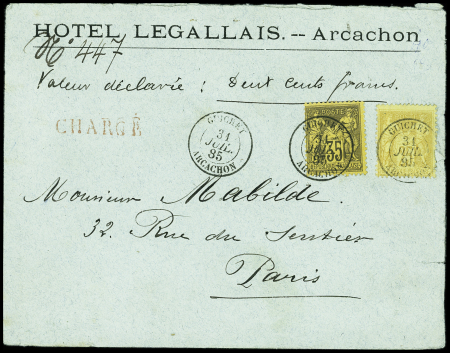 HOTEL LEGALLAIS. -- Arcachon
N° 447
Valeur déclarée : Deux cents francs.
CHARGÉ
GUICHET
31
JUIL.
85
ARCACHON
35
ARCACHON
GUICHET
31
JUIL
85
Monsieur Mabilde.
32. Rue du Sentier
Paris